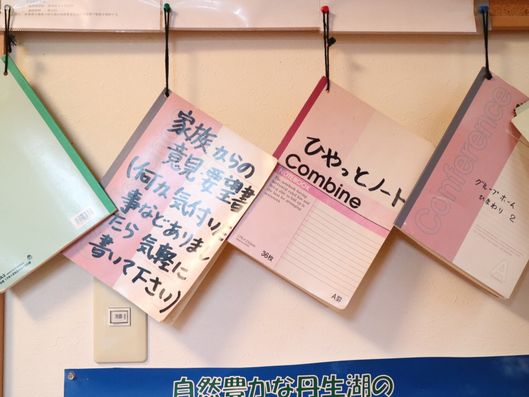 家族からの
意見・要望書
(何か気付いた
事などありまし
たら気軽に
書いて下さい)
ひやっとノート
NOTEBOOK
Combine
36枚
A罫
Conference
グループホーム
ひまわり 2
自然豊かな丹生湖の